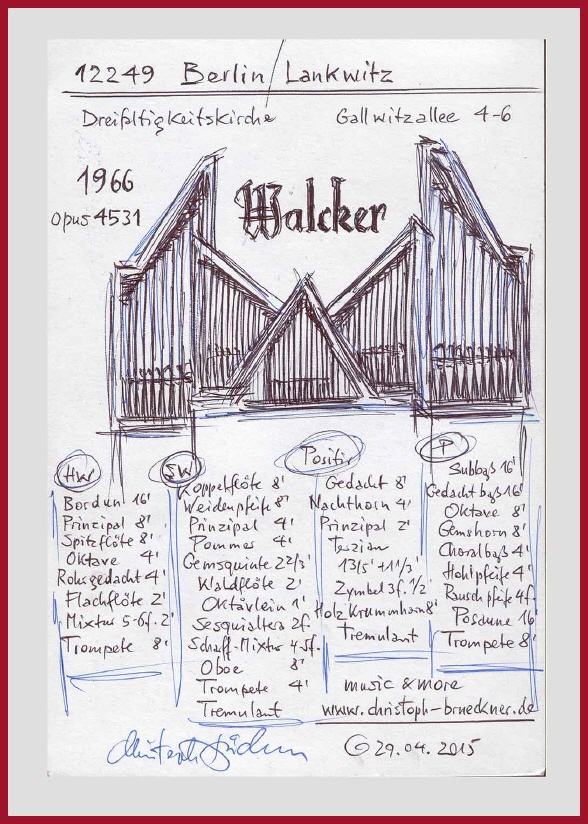 12249 Berlin/Lankwitz
Dreifaltigkeitskirche Gallwitzallee 4-6
1966
opus 4531
Walcker
HW
Bordun 16'
Prinzipal 8'
Spitzflöte 8'
Oktave 4'
Rohrgedackt 4'
Flachflöte 2'
Mixtur 5-6f. 2'
Trompete 8'
SW
Koppelflöte 8'
Weidenpfeife 8'
Prinzipal 4'
Pommer 4'
Gemsquinte 2 2/3'
Waldflöte 2'
Oktävlein 1'
Sesquialtera 2f.
Scharff-Mixtur 4-5f.
Oboe 8'
Trompete 4'
Tremulant
Positiv
Gedacht 8'
Nachthorn 4'
Prinzipal 2'
Terzian
1 3/5' + 1 1/3'
Zymbel 3f. 1/2'
Holz Krummhorn 8'
Tremulant
P
Subbaß 16'
Gedacht baß 16'
Oktave 8'
Gemshorn 8'
Choralbaß 4'
Hohlpfeife 4'
Rausch pfeife 4f.
Posaune 16'
Trompete 8'
music & more
www.christoph-brueckner.de
© 29.04.2015